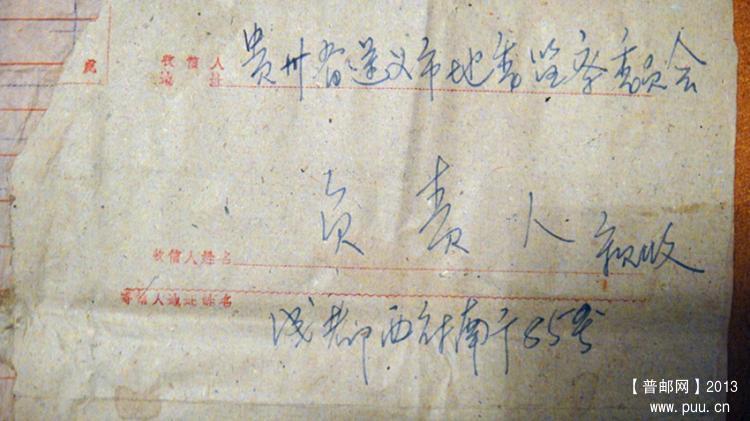 收信人地址 贵州省遵义市地委监察委员会
收信人姓名 负责人 亲收
寄信人地址姓名
成都西 南 85号
【普邮网】2013
www.puu.cn